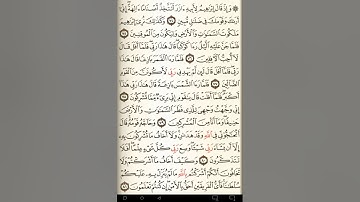 ۞ وَإِذْ قَالَ إِبْرَٰهِيمُ لِأَبِيهِ ءَازَرَ أَتَتَّخِذُ أَصْنَامًا ءَالِهَةً إِنِّىٓ
أَرَىٰكَ وَقَوْمَكَ فِى ضَلَٰلٍ مُّبِينٍ ٧٤ وَكَذَٰلِكَ نُرِىٓ إِبْرَٰهِيمَ
مَلَكُوتَ ٱلسَّمَٰوَٰتِ وَٱلْأَرْضِ وَلِيَكُونَ مِنَ ٱلْمُوقِنِينَ ٧٥
فَلَمَّا جَنَّ عَلَيْهِ ٱلَّيْلُ رَءَا كَوْكَبًا قَالَ هَٰذَا رَبِّى فَلَمَّآ أَفَلَ قَالَ
لَآ أُحِبُّ ٱلْءَافِلِينَ ٧٦ فَلَمَّا رَءَا ٱلْقَمَرَ بَازِغًا قَالَ هَٰذَا رَبِّى
فَلَمَّآ أَفَلَ قَالَ لَئِن لَّمْ يَهْدِنِى رَبِّى لَأَكُونَنَّ مِنَ ٱلْقَوْمِ
ٱلضَّآلِّينَ ٧٧ فَلَمَّا رَءَا ٱلشَّمْسَ بَازِغَةً قَالَ هَٰذَا رَبِّى هَٰذَآ
أَكْبَرُ فَلَمَّآ أَفَلَتْ قَالَ يَٰقَوْمِ إِنِّى بَرِىٓءٌ مِّمَّا تُشْرِكُونَ ٧٨
إِنِّى وَجَّهْتُ وَجْهِىَ لِلَّذِى فَطَرَ ٱلسَّمَٰوَٰتِ وَٱلْأَرْضَ
حَنِيفًا وَمَآ أَنَا۠ مِنَ ٱلْمُشْرِكِينَ ٧٩ وَحَآجَّهُۥ قَوْمُهُۥ قَالَ
أَتُحَٰٓجُّوٓنِّى فِى ٱللَّهِ وَقَدْ هَدَىٰنِ وَلَآ أَخَافُ مَا تُشْرِكُونَ بِهِۦٓ
إِلَّآ أَن يَشَآءَ رَبِّى شَيْـًٔا وَسِعَ رَبِّى كُلَّ شَىْءٍ عِلْمًا أَفَلَا
تَتَذَكَّرُونَ ٨٠ وَكَيْفَ أَخَافُ مَآ أَشْرَكْتُمْ وَلَا
تَخَافُونَ أَنَّكُمْ أَشْرَكْتُم بِٱللَّهِ مَا لَمْ يُنَزِّلْ بِهِۦ عَلَيْكُمْ
سُلْطَٰنًا فَأَىُّ ٱلْفَرِيقَيْنِ أَحَقُّ بِٱلْأَمْنِ إِن كُنتُمْ تَعْلَمُونَ ٨١